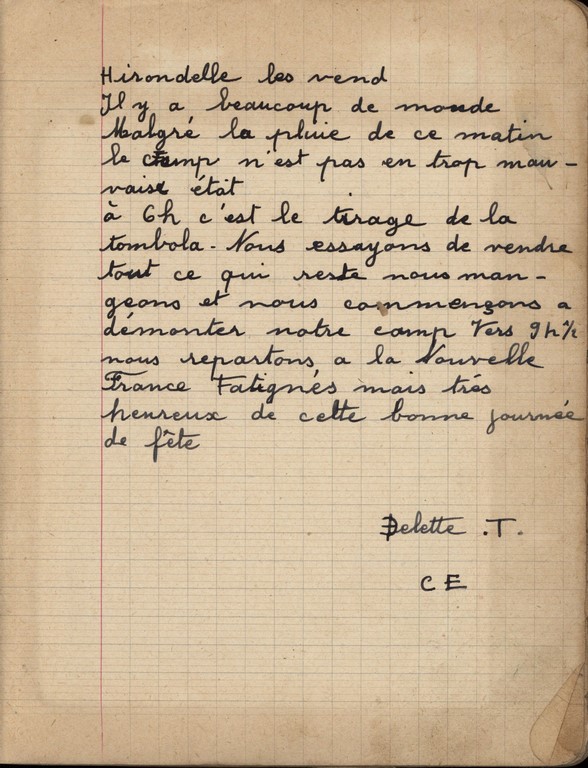 Hirondelle les vend
Il y a beaucoup de monde
Malgré la pluie de ce matin
le camp n'est pas en trop mau-
vaise état
à 6h c'est le tirage de la
tombola. Nous essayons de vendre
tout ce qui reste nous man-
geons et nous commençons a
démonter notre camp Vers 9h½
nous repartons a la Nouvelle
France Fatignés mais très
heureux de cette bonne journée
de fête
Delette .T.
C E